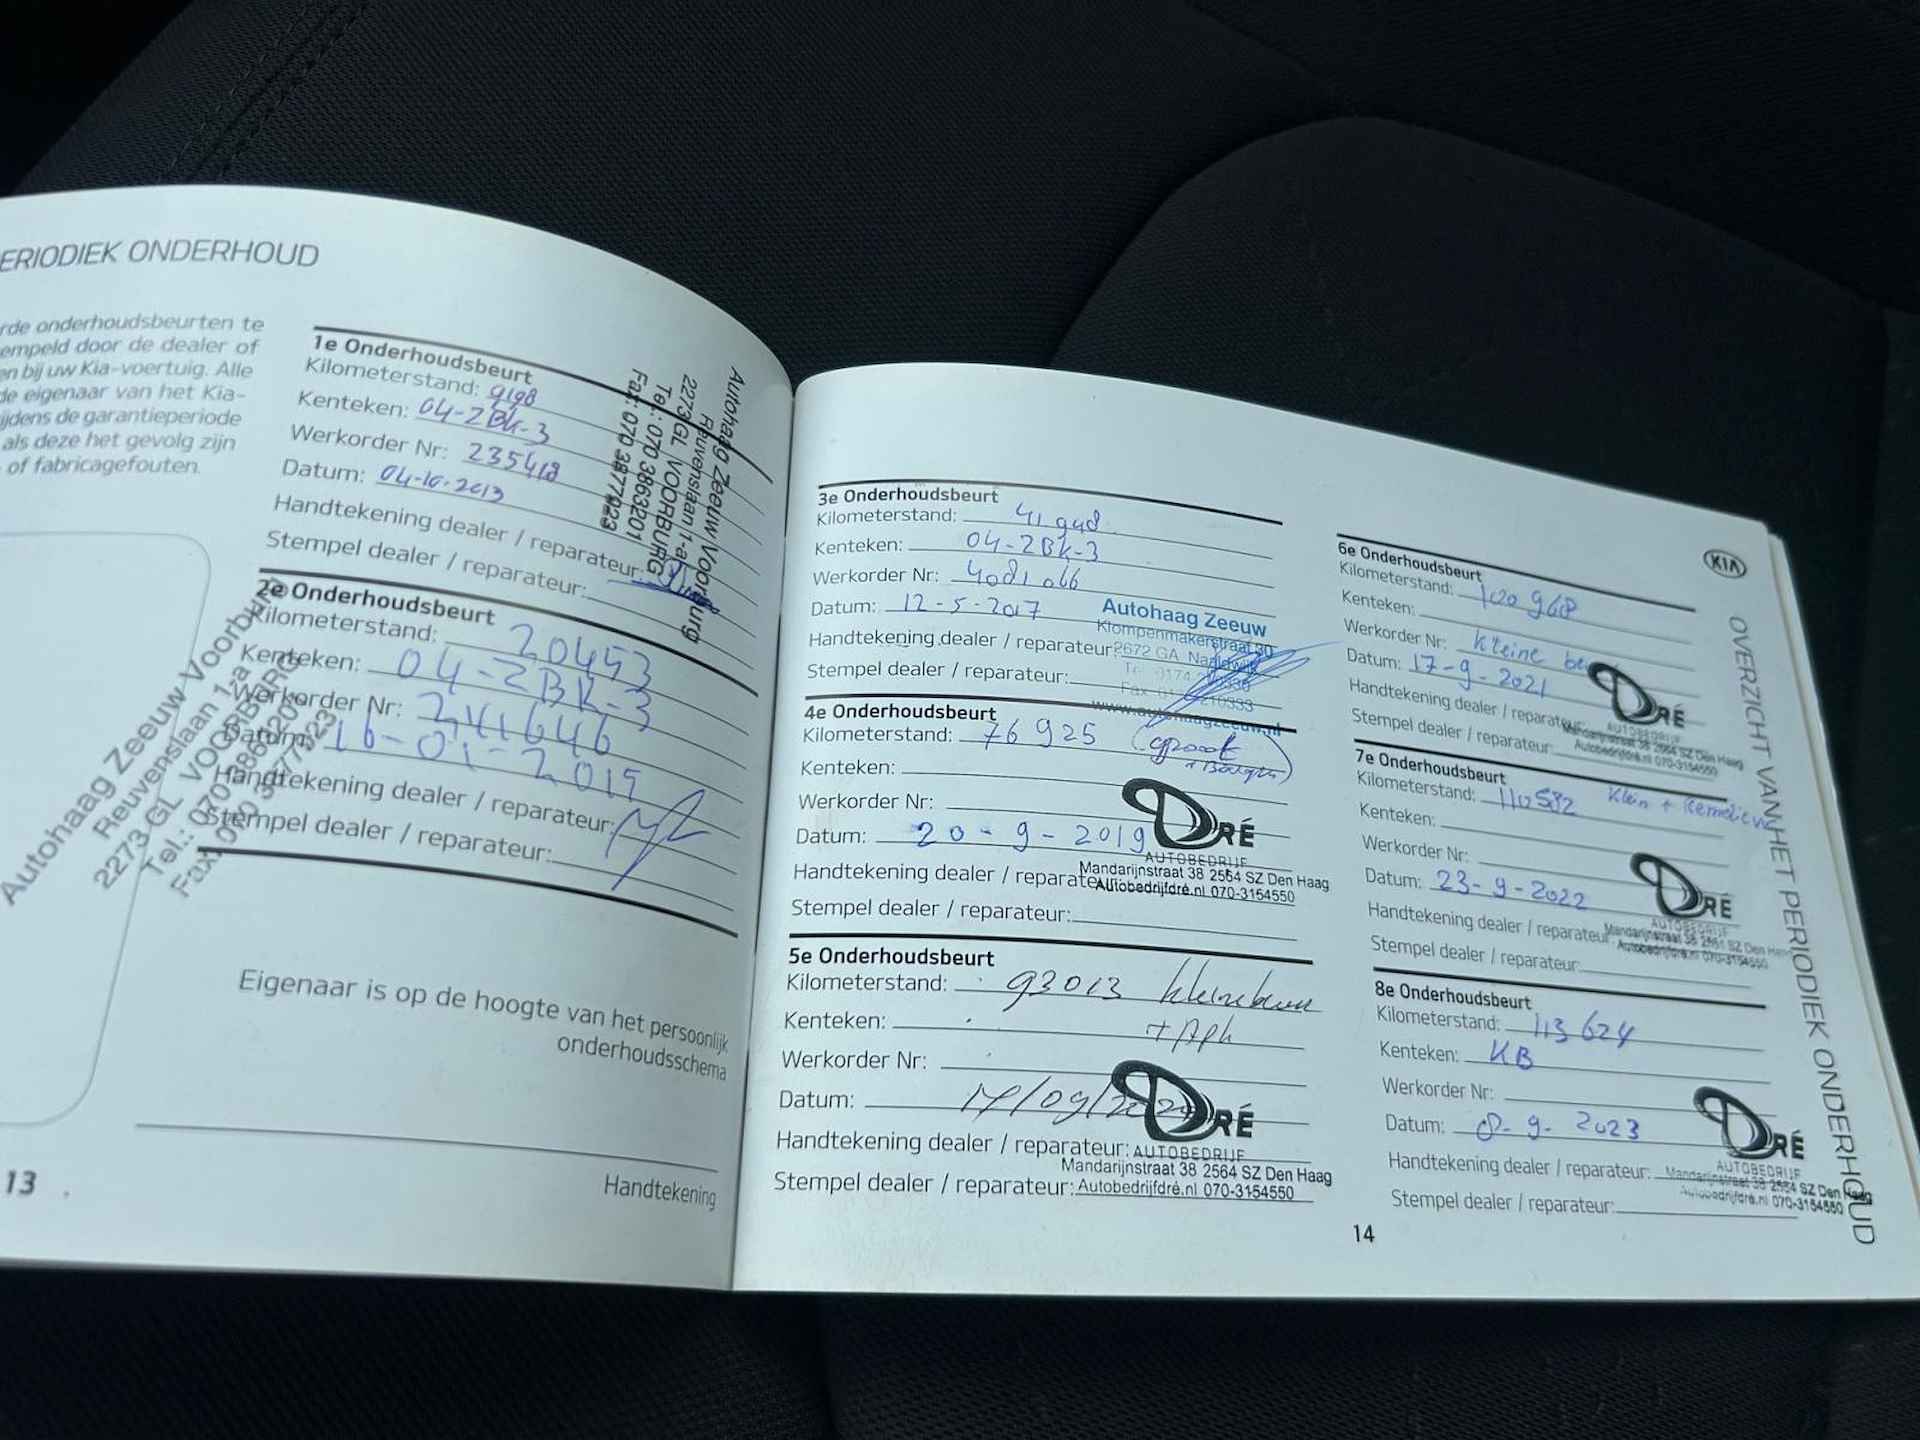 ERIODIEK ONDERHOUD
rde onderhoudsbeurten te
empeld door de dealer of
en bij uw Kia-voertuig. Alle
de eigenaar van het Kia-
ijdens de garantieperiode
als deze het gevolg zijn
of fabricagefouten.
1e Onderhoudsbeurt
Kilometerstand: 9198
Kenteken: 04-ZBK-3
Werkorder Nr: 235418
Datum: 04-10-2013
Handtekening dealer / reparateur:
Stempel dealer / reparateur:
Autohaag Zeeuw Voorburg
Reuvenslaan 1-a
2273 GL VOORBURG
Tel.: 070 3863201
Fax: 070 3877023
2e Onderhoudsbeurt
Kilometerstand: 20453
Kenteken: 04-ZBK-3
Werkorder Nr: 241646
Datum: 16-01-2015
Handtekening dealer / reparateur:
Stempel dealer / reparateur:
Autohaag Zeeuw Voorburg
Reuvenslaan 1-a
2273 GL VOORBURG
Tel.: 070 3863201
Fax: 070 3877023
Eigenaar is op de hoogte van het persoonlijk
onderhoudsschema
Handtekening
13
3e Onderhoudsbeurt
Kilometerstand: 41948
Kenteken: 04-ZBK-3
Werkorder Nr:
Datum: 12-5-2017
Handtekening dealer / reparateur:
Stempel dealer / reparateur:
Autohaag Zeeuw
Klompenmakerstraat 30
2672 GA Naaldwijk
www.autohaagzeeuw.nl
4e Onderhoudsbeurt
Kilometerstand: 76925
Kenteken:
Werkorder Nr:
Datum: 20-9-2019
Handtekening dealer / reparateur:
Stempel dealer / reparateur:
DRÉ
AUTOBEDRIJF
Mandarijnstraat 38 2564 SZ Den Haag
Autobedrijfdré.nl 070-3154550
5e Onderhoudsbeurt
Kilometerstand: 93013 kleinebeurt
+ Apk
Kenteken:
Werkorder Nr:
Datum: 17/09/2020
Handtekening dealer / reparateur:
Stempel dealer / reparateur:
DRÉ
AUTOBEDRIJF
Mandarijnstraat 38 2564 SZ Den Haag
Autobedrijfdré.nl 070-3154550
6e Onderhoudsbeurt
Kilometerstand: 100968
Kenteken:
Werkorder Nr: Kleine
Datum: 17-9-2021
Handtekening dealer / reparateur:
Stempel dealer / reparateur:
DRÉ
AUTOBEDRIJF
Mandarijnstraat 38 2564 SZ Den Haag
Autobedrijfdré.nl 070-3154550
7e Onderhoudsbeurt
Kilometerstand: 110582 Klein +
Kenteken:
Werkorder Nr:
Datum: 23-9-2022
Handtekening dealer / reparateur:
Stempel dealer / reparateur:
DRÉ
AUTOBEDRIJF
Mandarijnstraat 38 2564 SZ Den Haag
Autobedrijfdré.nl 070-3154550
8e Onderhoudsbeurt
Kilometerstand: 113624
Kenteken: KB
Werkorder Nr:
Datum: 8-9-2023
Handtekening dealer / reparateur:
Stempel dealer / reparateur:
DRÉ
AUTOBEDRIJF
Mandarijnstraat 38 2564 SZ Den Haag
Autobedrijfdré.nl 070-3154550
14
KIA
OVERZICHT VAN HET PERIODIEK ONDERHOUD